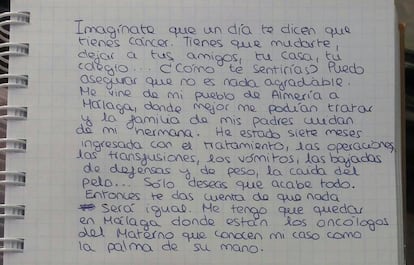 Imagínate que un día te dicen que
tienes cáncer. Tienes que mudarte,
dejar a tus amigos, tu casa, tu
colegio... ¿Cómo te sentirías? Puedo
asegurar que no es nada agradable.
Me vine de mi pueblo de Almería a
Málaga, donde mejor me podían tratar
y la familia de mis padres cuidan
de mi hermana. He estado siete meses
ingresada con el tratamiento, las operaciones,
las transfusiones, los vómitos, las bajadas
de defensas y de peso, la caída del
pelo... Sólo deseas que acabe todo.
Entonces te das cuenta de que nada
será igual. Me tengo que quedar
en Málaga donde están los oncólogos
del Materno que conocen mi caso como
la palma de su mano.